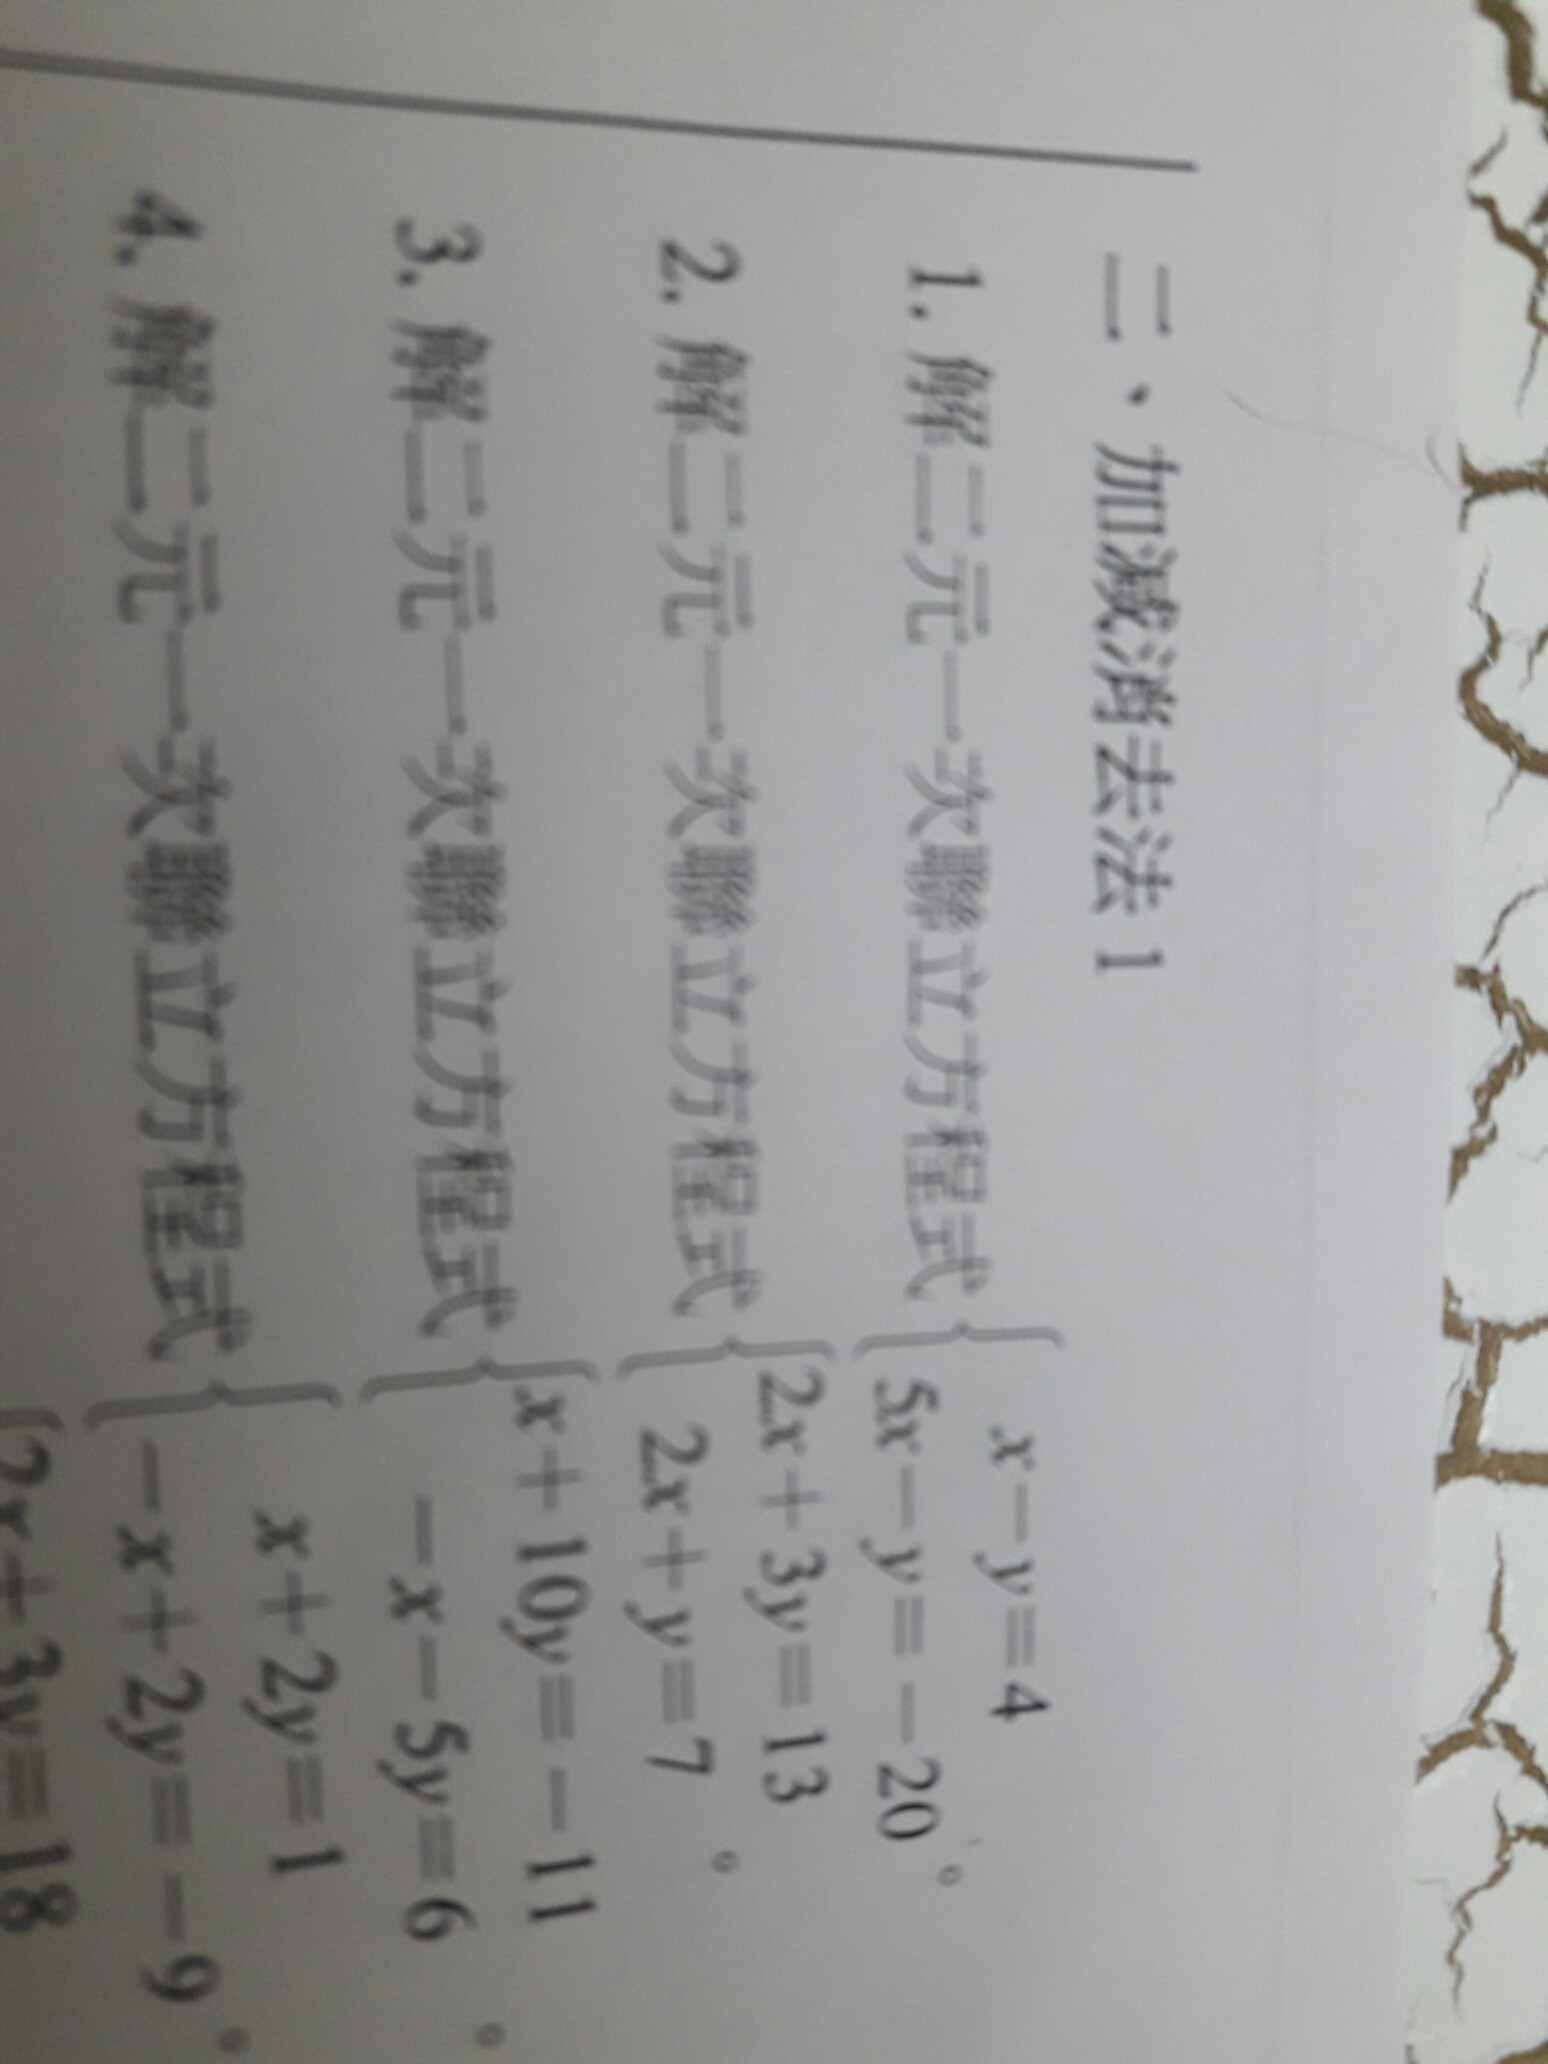 二、加減消去法 1
1. 解二元一次聯立方程式{ x－y＝4
5x－y＝－20 。
2. 解二元一次聯立方程式{ 2x＋3y＝13
2x＋y＝7 。
3. 解二元一次聯立方程式{ x＋10y＝－11
－x－5y＝6 。
4. 解二元一次聯立方程式{ x＋2y＝1
－x＋2y＝－9 。
{ 2x＋3y＝18